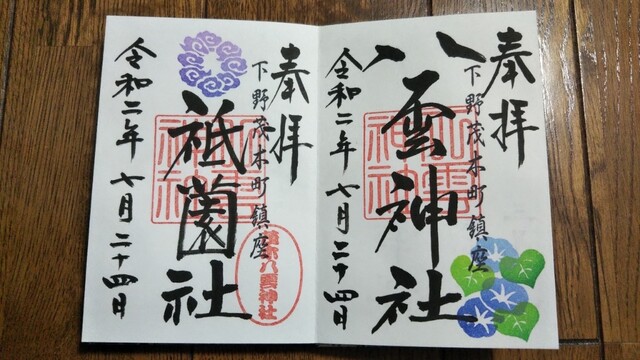 奉拝
下野茂木町鎮座
八雲神社
令和二年七月二十四日
奉拝
下野茂木町鎮座
祇園社
令和二年七月二十四日
茂木八雲神社